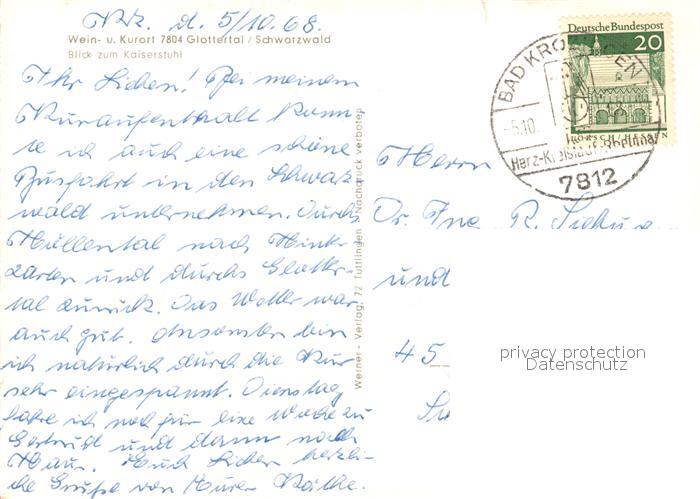 Krz. d. 5/10.68.
Wein- u. Kurort 7804 Glottertal / Schwarzwald
Blick zum Kaiserstuhl
Ihr Lieben! Bei meinem
Kuraufenthalt konn
te ich auch eine schöne
Busfahrt in den Schwarz
wald unternehmen. Durchs
Höllental nach Hinter
zarten und durchs Glotter-
tal zurück. Das Wetter war
auch gut. Ansonsten bin
ich natürlich durch die Kur
sehr eingespannt. Dienstag
fahre ich noch für eine Woche zu
Gertrud und dann nach
Haus. Euch Lieben herzli-
che Grüße von Eurer Käthe.
Werner - Verlag, 72 Tuttlingen Nachdruck verboten
Deutsche Bundespost
20
LORSCH / HESSEN
BAD KROZINGEN
-5.10.
Herz-Kreislauf-Rheuma
7812
Herrn
Dr. Ing. R.
und
45
privacy protection
Datenschutz